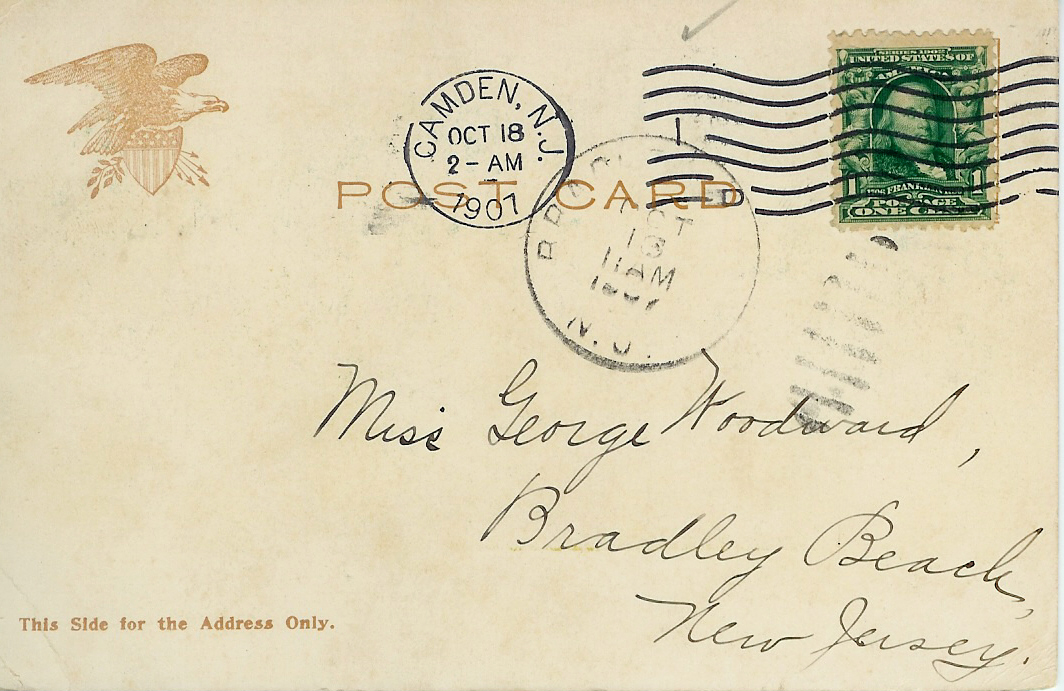 SERIES 1902
UNITED STATES OF
AMERICA
1 FRANKLIN 1
POSTAGE
ONE CENT
CAMDEN, N.J.
OCT 18
2-AM
1907
POST CARD
OCT
18
11 AM
1907
N.J.
Miss George Woodward,
Bradley Beach,
New Jersey.
This Side for the Address Only.